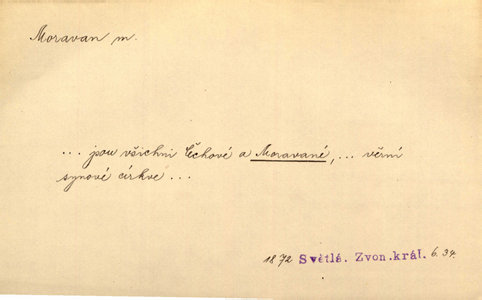 Moravan m.
... jsou všichni Čechové a Moravané, ... věrní
synové církve ...
1872 Světlá. Zvon.král. 6.34.